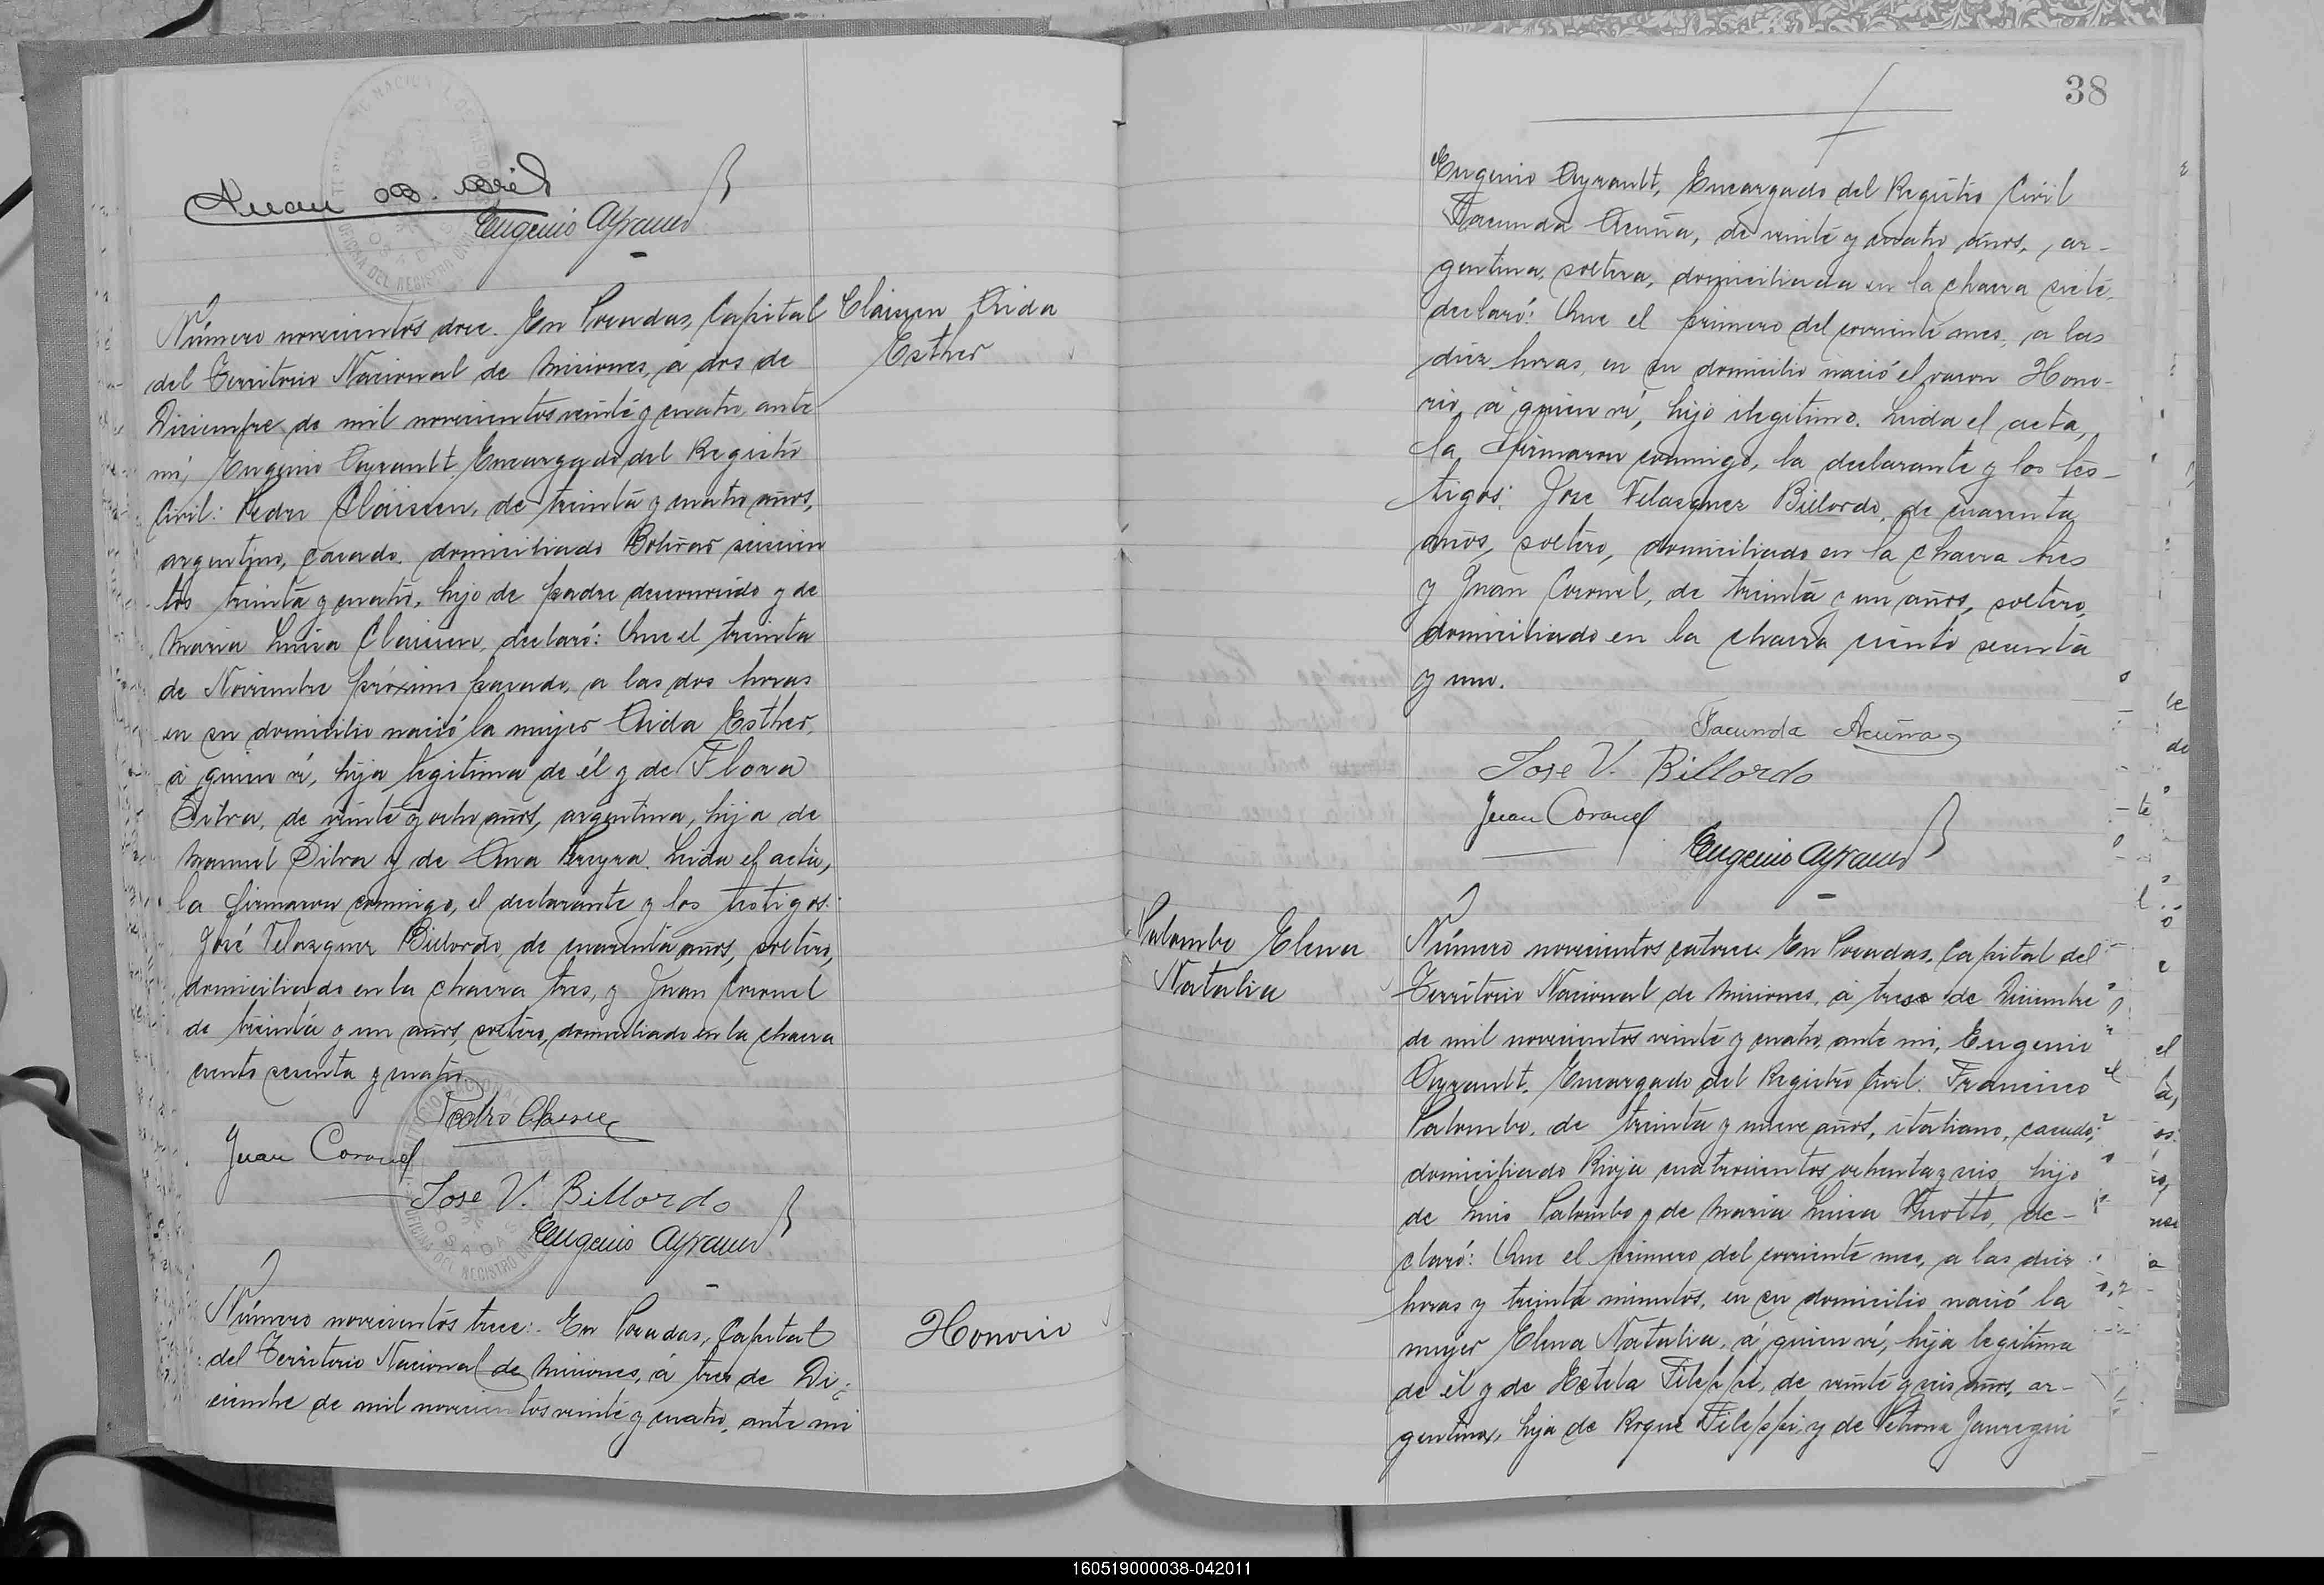 Juan B.
Eugenio Ayrault
Número novecientos doce. En Posadas, Capital
del Territorio Nacional de Misiones, á dos de
Diciembre de mil novecientos veinte y cuatro, ante
mi, Eugenio Ayrault, Encargado del Registro
Civil: Pedro Claisen, de treinta y cuatro años,
argentino, casado, domiciliado Bolivar seiscien
tos treinta y cuatro, hijo de padre desconocido y de
Maria Luisa Claisen, declaró: Que el treinta
de Noviembre próximo pasado, a las dos horas
en su domicilio nació la mujer Aida Esther,
á quien ví, hija legitima de él y de Flora
Silva, de veinte y ocho años, argentina, hija de
Manuel Silva y de Ana Pereyra. Leida el acta,
la firmaron conmigo, el declarante y los testigos:
José Velazquez Billordo, de cuarenta años, soltero,
domiciliado en la chacra tres, y Juan Coronel
de treinta y un años, soltero, domiciliado en la chacra
ciento sesenta y cuatro
Pedro
Juan Coronel
Jose V. Billordo
Eugenio Ayrault
Claisen Aida
Esther
Número novecientos trece. En Posadas, Capital
del Territorio Nacional de Misiones, á tres de Di-
ciembre de mil novecientos veinte y cuatro, ante mi
Honorio
38
Eugenio Ayrault, Encargado del Registro Civil
Facunda Acuña, de veinte y cuatro años, ar-
gentina, soltera, domiciliada en la chacra siete,
declaró: Que el primero del corriente mes, a las
diez horas, en su domicilio nació el varon Hono-
rio, á quien ví, hijo ilegitimo. Leida el acta,
la firmaron conmigo, la declarante y los tes-
tigos: Jose Velazquez Billordo, de cuarenta
años, soltero, domiciliado en la chacra tres
y Juan Coronel, de treinta y un años, soltero,
domiciliado en la chacra ciento sesenta
y uno.
Facunda Acuña
Jose V. Billordo
Juan Coronel
Eugenio Ayrault
Palombo Elena
Natalia
Número novecientos catorce. En Posadas, Capital del
Territorio Nacional de Misiones, á tres de Diciembre
de mil novecientos veinte y cuatro, ante mi, Eugenio
Ayrault, Encargado del Registro Civil: Francisco
Palombo, de treinta y nueve años, italiano, casado,
domiciliado Rioja cuatrocientos ochenta y seis, hijo
de Luis Palombo y de Maria Luisa, de-
claró: Que el primero del corriente mes, a las diez
horas y treinta minutos, en su domicilio nació la
mujer Elena Natalia, á quien ví, hija legitima
de él y de Estela Fileppi, de veinte y seis años, ar-
gentina, hija de Roque Fileppi, y de Petrona Jauregui
160519000038-042011